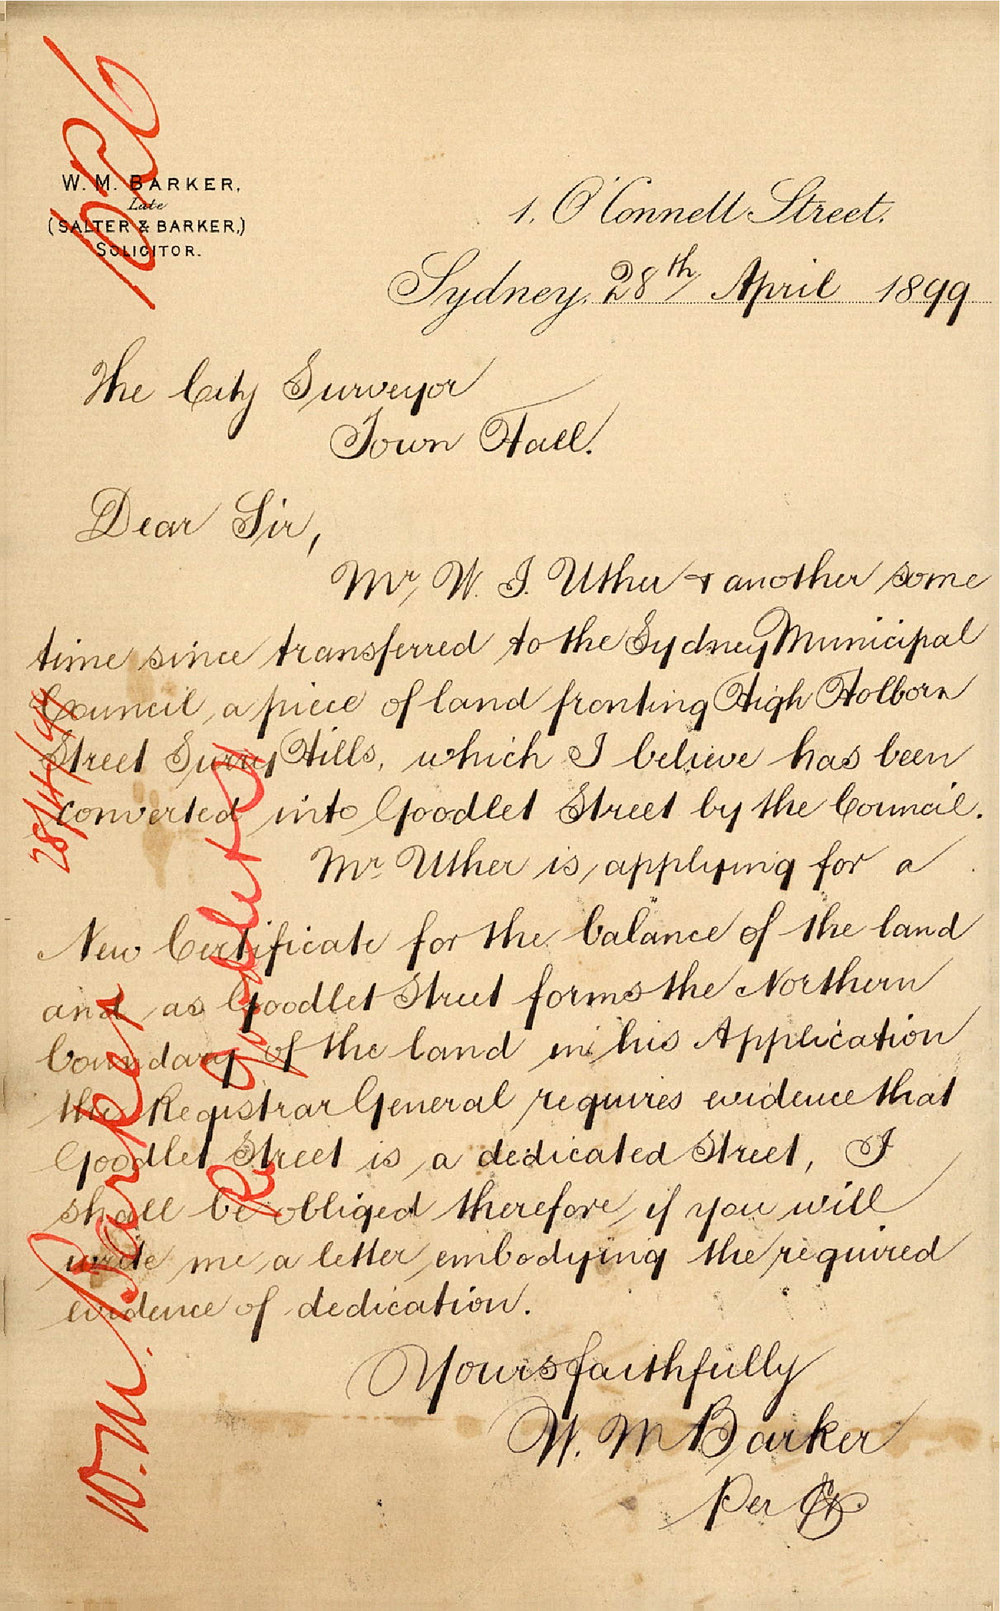 W. M. BARKER,
Late
(SALTER & BARKER,)
SOLICITOR.
1. O'Connell Street.
Sydney. 28th April 1899
The City Surveyor
Town Hall.
Dear Sir,
Mr. W. J. Uther & another some
time since transferred to the Sydney Municipal
Council a piece of land fronting High Holborn
Street Surry Hills, which I believe has been
converted into Goodlet Street by the Council.
Mr. Uther is applying for a
New Certificate for the balance of the land
and as Goodlet Street forms the Northern
boundary of the land in his Application
the Registrar General requires evidence that
Goodlet Street is a dedicated Street, I
shall be obliged therefore if you will
write me a letter embodying the required
evidence of dedication.
Yours faithfully
W. M Barker
Per
W.M. Barker
28/4/99
Re Goodlet St